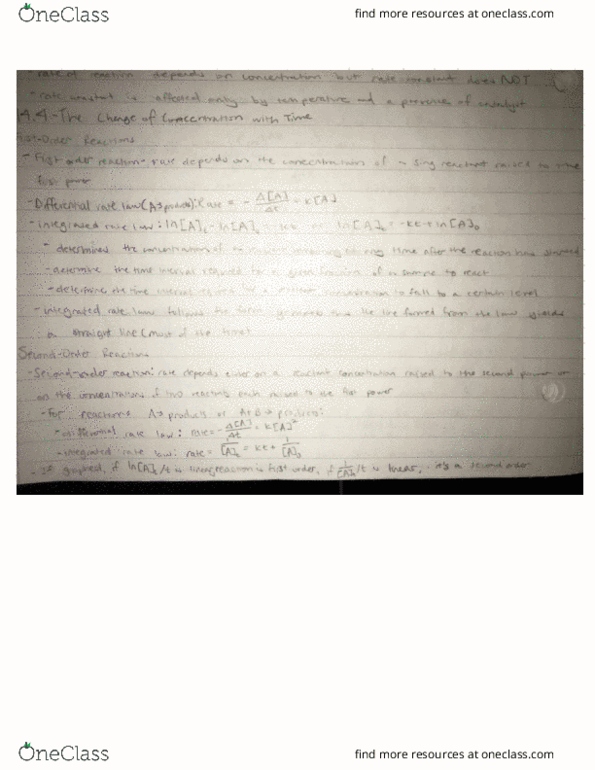 OneClass
find more resources at oneclass.com
- rate of reaction depends on concentration but rate constant does NOT
- rate constant is affected only by temperature and a presence of catalyst
14.4 - The Change of Concentration with Time
First-Order Reactions
- First order reaction - rate depends on the concentration of a sing reactant raised to the
first power
- Differential rate law (A→products): Rate = - Δ[A]/Δt = k[A]
- integrated rate law: ln[A]t - ln[A]0 = -kt or ln[A]t = -kt + ln[A]0
- determines the concentration of remaining at any time after the reaction has started
- determine the time interval required for a given fraction of a sample to react
- determine the time interval for a reactant concentration to fall to a certain level
- integrated rate law follows the form the line formed from the law yields
a straight line (most of the time)
Second-Order Reactions
- Second-order reaction: rate depends either on a reactant concentration raised to the second power or
on the concentrations of two reactants each raised to the first power
- For reactions A→products or A+B→products:
- differential rate law: rate = - Δ[A]/Δt = k[A]²
- integrated rate law: rate = 1/[A]t = kt + 1/[A]0
- If graphed, if ln[A]t/t is linear, reaction is first order, if 1/[A]t/t is linear, it's a second order
OneClass
find more resources at oneclass.com